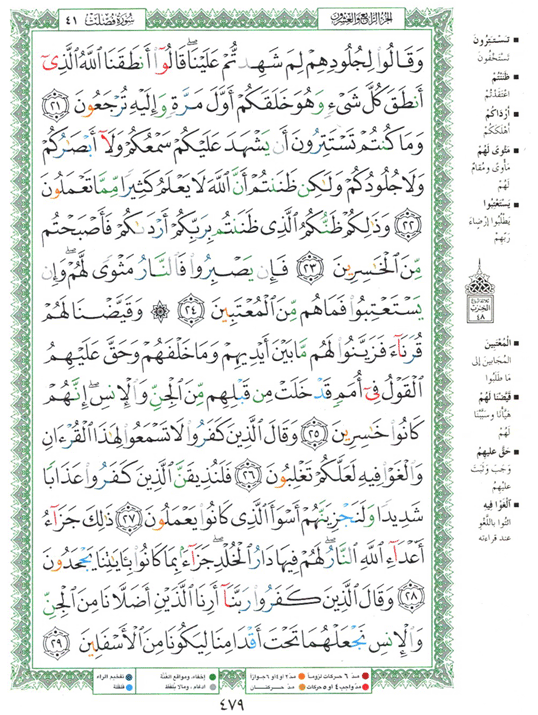 الجزء الرابع والعشرون
سورة فصلت ٤١
وَقَالُوا۟ لِجُلُودِهِمْ لِمَ شَهِدتُّمْ عَلَيْنَا ۖ قَالُوٓا۟ أَنطَقَنَا ٱللَّهُ ٱلَّذِىٓ
أَنطَقَ كُلَّ شَىْءٍ وَهُوَ خَلَقَكُمْ أَوَّلَ مَرَّةٍ وَإِلَيْهِ تُرْجَعُونَ ٢١
وَمَا كُنتُمْ تَسْتَتِرُونَ أَن يَشْهَدَ عَلَيْكُمْ سَمْعُكُمْ وَلَآ أَبْصَٰرُكُمْ
وَلَا جُلُودُكُمْ وَلَٰكِن ظَنَنتُمْ أَنَّ ٱللَّهَ لَا يَعْلَمُ كَثِيرًا مِّمَّا تَعْمَلُونَ
٢٢ وَذَٰلِكُمْ ظَنُّكُمُ ٱلَّذِى ظَنَنتُم بِرَبِّكُمْ أَرْدَىٰكُمْ فَأَصْبَحْتُم
مِّنَ ٱلْخَٰسِرِينَ ٢٣ فَإِن يَصْبِرُوا۟ فَٱلنَّارُ مَثْوًى لَّهُمْ ۖ وَإِن
يَسْتَعْتِبُوا۟ فَمَا هُم مِّنَ ٱلْمُعْتَبِينَ ٢٤ ۞ وَقَيَّضْنَا لَهُمْ
قُرَنَآءَ فَزَيَّنُوا۟ لَهُم مَّا بَيْنَ أَيْدِيهِمْ وَمَا خَلْفَهُمْ وَحَقَّ عَلَيْهِمُ
ٱلْقَوْلُ فِىٓ أُمَمٍ قَدْ خَلَتْ مِن قَبْلِهِم مِّنَ ٱلْجِنِّ وَٱلْإِنسِ ۖ إِنَّهُمْ
كَانُوا۟ خَٰسِرِينَ ٢٥ وَقَالَ ٱلَّذِينَ كَفَرُوا۟ لَا تَسْمَعُوا۟ لِهَٰذَا ٱلْقُرْءَانِ
وَٱلْغَوْا۟ فِيهِ لَعَلَّكُمْ تَغْلِبُونَ ٢٦ فَلَنُذِيقَنَّ ٱلَّذِينَ كَفَرُوا۟ عَذَابًا
شَدِيدًا وَلَنَجْزِيَنَّهُمْ أَسْوَأَ ٱلَّذِى كَانُوا۟ يَعْمَلُونَ ٢٧ ذَٰلِكَ جَزَآءُ
أَعْدَآءِ ٱللَّهِ ٱلنَّارُ ۖ لَهُمْ فِيهَا دَارُ ٱلْخُلْدِ ۖ جَزَآءًۢ بِمَا كَانُوا۟ بِـَٔايَٰتِنَا يَجْحَدُونَ
٢٨ وَقَالَ ٱلَّذِينَ كَفَرُوا۟ رَبَّنَآ أَرِنَا ٱلَّذَيْنِ أَضَلَّانَا مِنَ ٱلْجِنِّ
وَٱلْإِنسِ نَجْعَلْهُمَا تَحْتَ أَقْدَامِنَا لِيَكُونَا مِنَ ٱلْأَسْفَلِينَ ٢٩
■ تَسْتَتِرُونَ
تَسْتَخْفُونَ
■ ظَنَنتُمْ
اعْتَقَدْتُمْ
■ أَرْدَاكُمْ
أَهْلَكَكُمْ
■ مَثْوًى لَهُمْ
مَأْوًى وَمُقَامٌ
لَهُمْ
■ يَسْتَعْتِبُوا
يَطْلُبُوا إِرْضَاءَ
رَبِّهِمْ
الحزب
٤٨
■ الْمُعْتَبِينَ
الْمُجَابِينَ إِلَى
مَا طَلَبُوا
■ قَيَّضْنَا لَهُمْ
هَيَّأْنَا وَسَبَّبْنَا
لَهُمْ
■ حَقَّ عَلَيْهِمُ
وَجَبَ وَثَبَتَ
عَلَيْهِمْ
■ الْغَوْا فِيهِ
ائْتُوا بِاللَّغْوِ
عِنْدَ قِرَاءَتِهِ
مدّ ٦ حركات لزوماً
مدّ ٢ أو ٤ أو ٦ جوازاً
إخفاء، ومواقع الغنّة
تفخيم الراء
مدّ واجب ٤ أو ٥ حركات
مدّ حركتان
إدغام، وما لا يُلفظ
قلقلة
٤٧٩